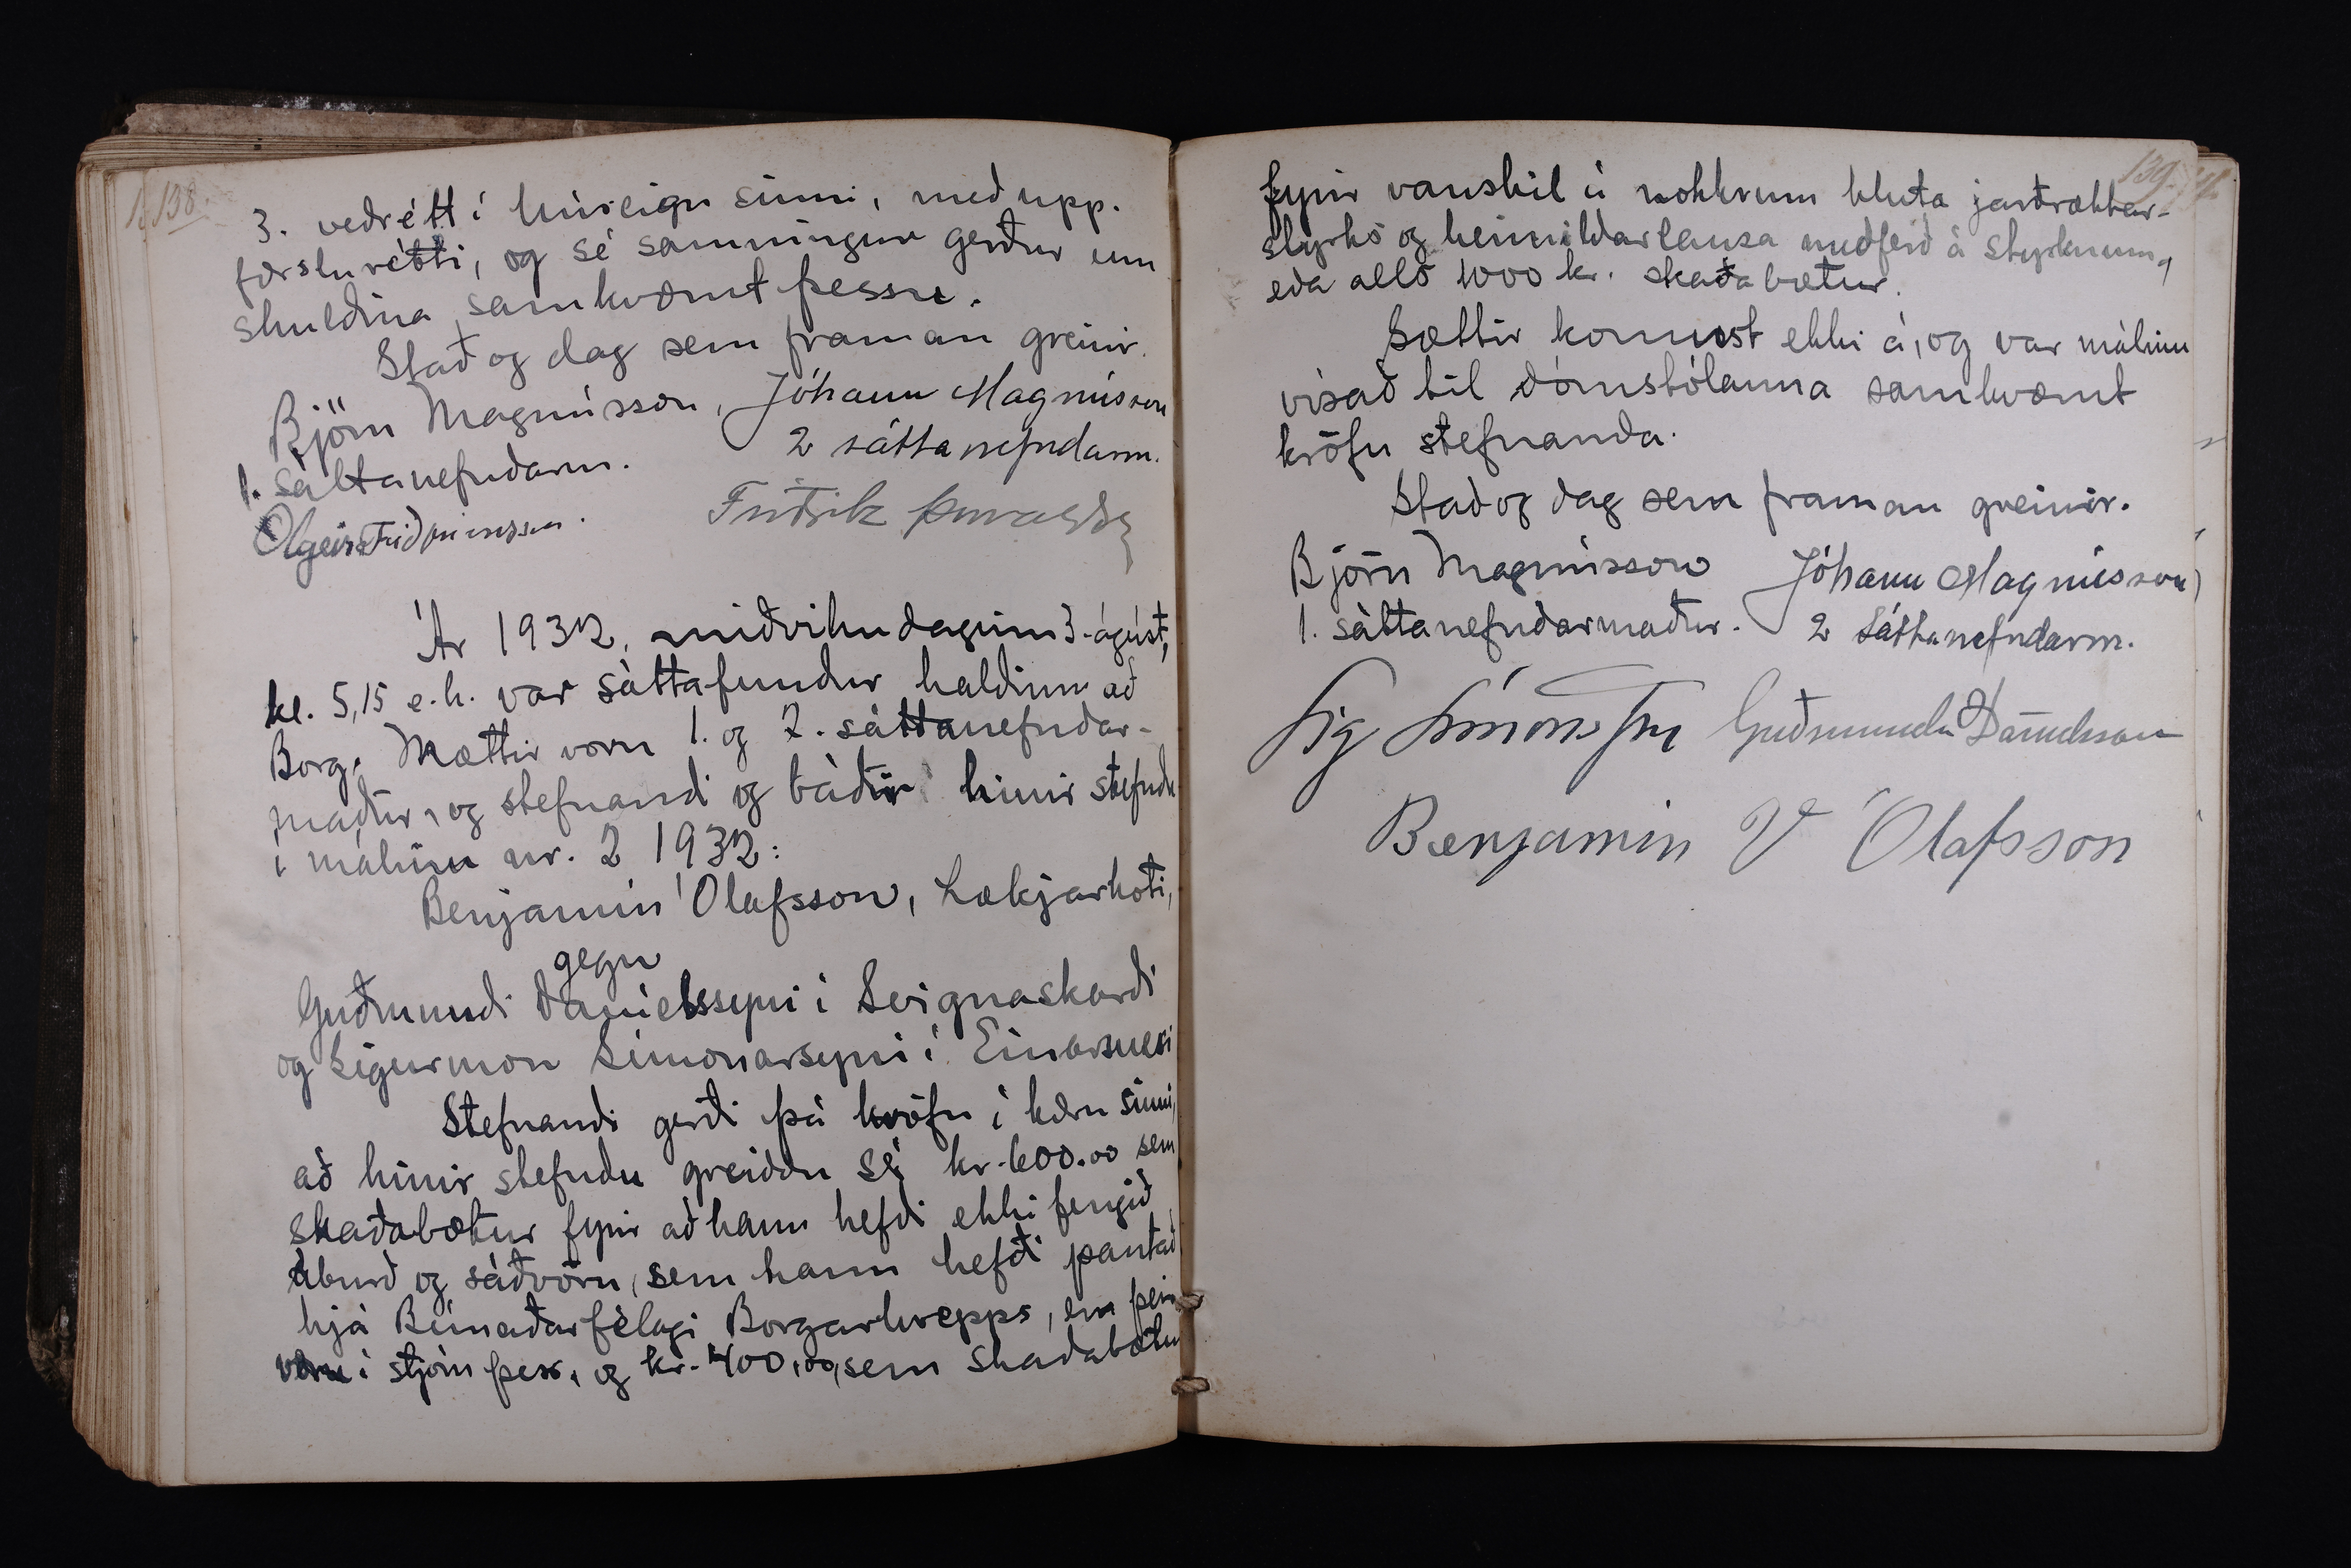 138.
3. veðrétt í húseign sinni, með upp-
færslurétti, og sé samningur gerður um
skuldina samkvæmt þessu.
Stað og dag sem framan greinir.
Björn Magnússon, Jóhann Magnússon
1. sáttanefndarm. 2 sáttanefndarm.
Olgeir Friðfinnsson. Friðrik Þorvaldss
Ár 1932, miðvikudaginn 3. ágúst,
kl. 5,15 e.h. var sáttafundur haldinn að
Borg. Mættir voru 1. og 2. sáttanefndar-
maður, og stefnandi og báðir hinir stefndu
í málinu nr. 2 1932:
Benjamín Ólafsson, Lækjarkoti,
gegn
Guðmundi Daníelssyni í Svignaskarði
og Sigurmon Símonarsyni í Einarsnesi
Stefnandi gerði þá kröfu í kæru sinni,
að hinir stefndu greiddu sé kr. 600.00 sem
skaðabætur fyrir að hann hefði ekki fengið
áburð og sáðvöru, sem hann hefði pantað
hjá Búnaðarfélagi Borgarhrepps, en þeir
voru í stjórn þess, og kr. 400,00, sem skaðabætur
139.
fyrir vanskil á nokkrum hluta jarðræktar-
styrks og heimildarlausa meðferð á styrknum,
eða alls 1000 kr. skaðabætur.
Sættir komust ekki á, og var málinu
vísað til dómstólanna samkvæmt
kröfu stefnanda.
Stað og dag sem framan greinir.
Björn Magnússon Jóhann Magnússon
1. sáttanefndarmaður. 2 sáttanefndarm.
Sig Símonarson Guðmundur Daníelsson
Benjamin V Ólafsson